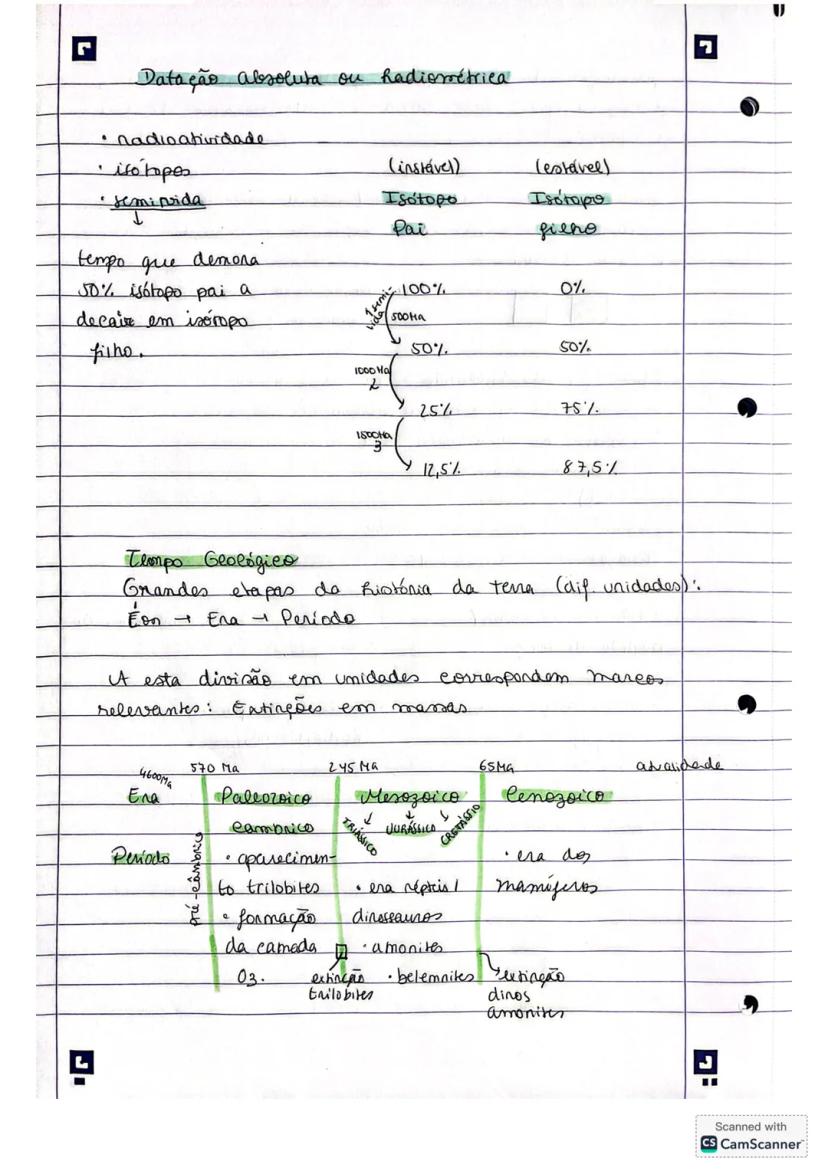 Datação absoluta ou Radiométrica
• radioatividade
• isótopos (instável) (estável)
• semivida Isótopo Isótopo
Pai filho
tempo que demora
50% isótopo pai a 100% 0%
1 semi-vida 500Ma
decair em isótopo
filho. 50% 50%
1000Ma
2
25% 75%
1500Ma
3
12,5% 87,5%
Tempo Geológico
Grandes etapas da história da terra (dif. unidades):
Éon → Era → Período
A esta divisão em unidades correspondem marcos
relevantes: Extinções em massas
4600Ma 570 Ma 245 MA 65MA atualidade
Era Paleozoico Mesozoico Cenozoico
câmbrico TRIÁSSICO JURÁSSICO CRETÁSSIO
Período pré-câmbrico • aparecimen- • era dos
to trilobites • era réptis/ mamíferos
• formação dinossauros
da camada • amonites
O3. extinção • belemnites extinção
trilobites dinos
amonites
Scanned with
CS CamScanner